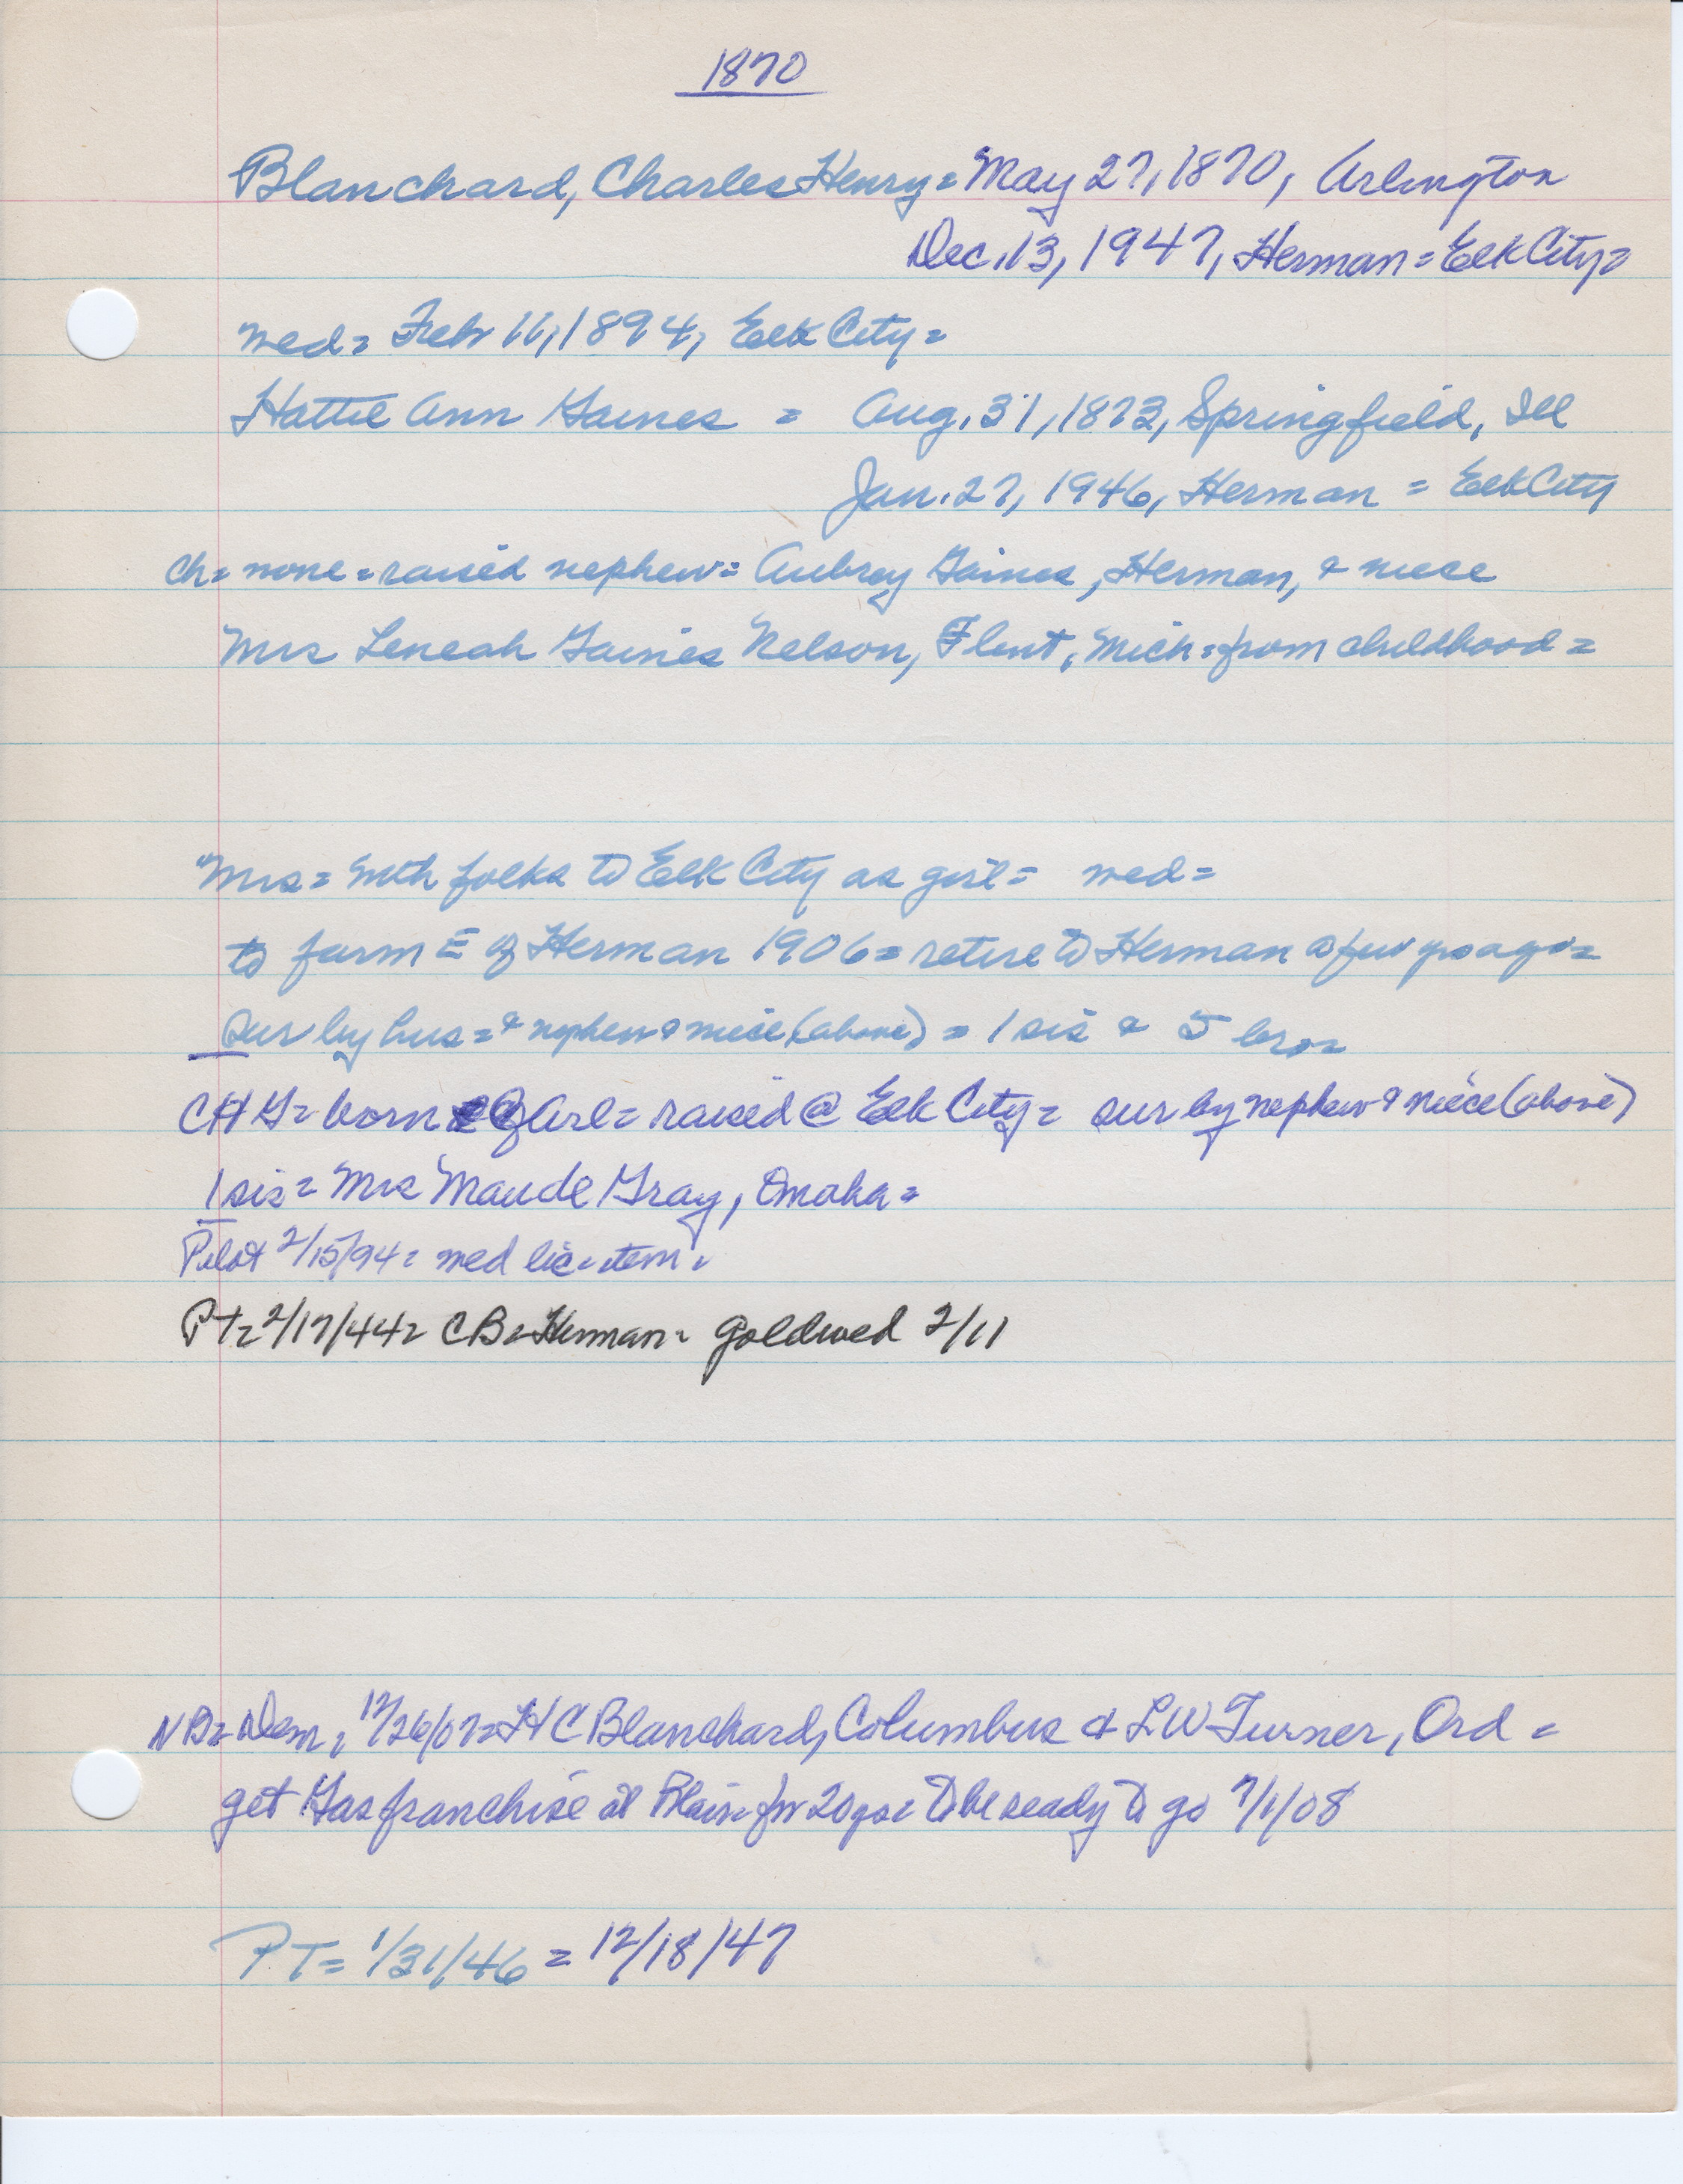 1870
Blanchard, Charles Henry = May 27, 1870, Arlington
Dec. 13, 1947, Herman = Elk City =
wed = Feb 11, 1894, Elk City =
Hattie Ann Gaines = Aug. 31, 1873, Springfield, Ill
Jan. 27, 1946, Herman = Elk City
ch = none = raised nephew = Aubrey Gaines, Herman, & niece
Mrs Leneah Gaines Nelson, Flint, Mich = from childhood =
Mrs = with folks to Elk City as girl = wed =
to farm E of Herman 1906 = retire to Herman a few yrs ago =
Sur by hus = & nephew & niece (above) = 1 sis & 5 bros =
CHG = born @ Arl = raised @ Elk City = sur by nephew & niece (above)
1 sis = Mrs Maude Gray, Omaha =
Pilot 2/15/94 = wed lic = item =
PT = 2/17/44 = CB = Herman = goldwed 2/11
NB = Dem, 12/26/07 = H C Blanchard, Columbus & L W Turner, Ord =
get Gas franchise at Blair = for 20 yrs = to be ready to go 7/1/08
PT = 1/31/46 = 12/18/47